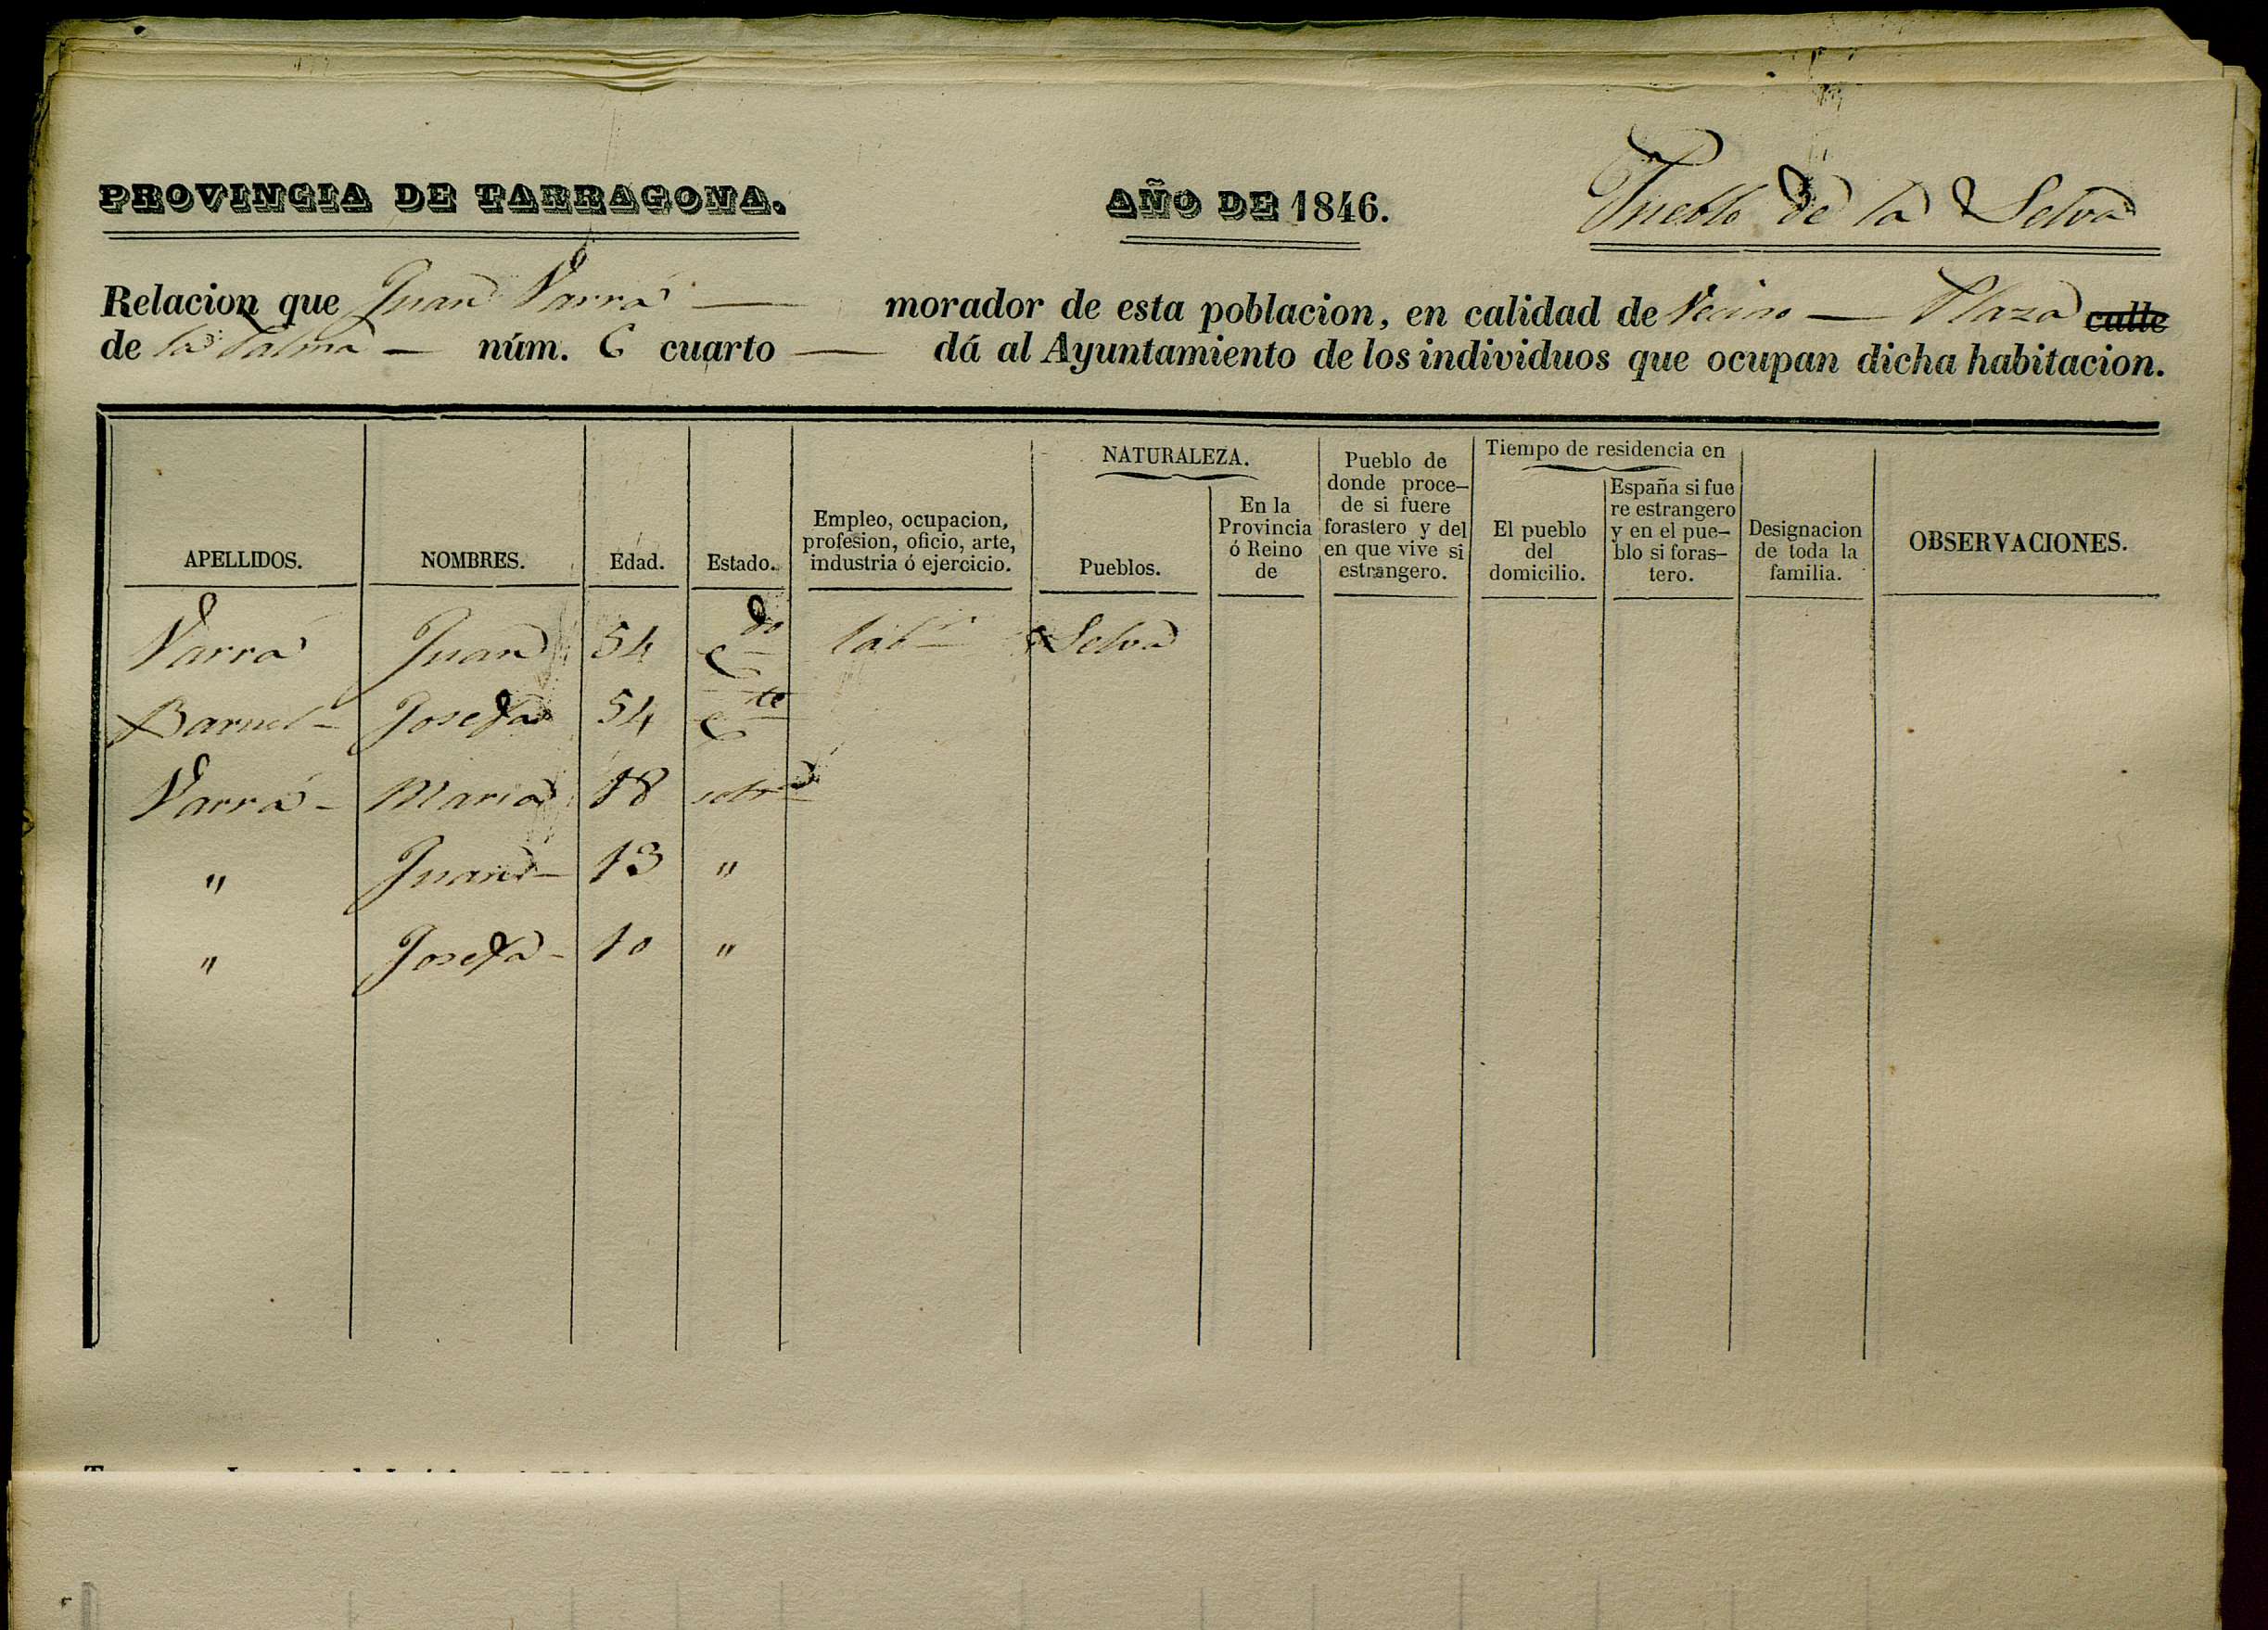 PROVINCIA DE TARRAGONA. AÑO DE 1846. Pueblo de la Selva
Relacion que Juan Varrá — morador de esta poblacion, en calidad de Vecino — Plaza calle
de la Palma — núm. 6 cuarto — dá al Ayuntamiento de los individuos que ocupan dicha habitacion.
APELLIDOS.
NOMBRES.
Edad.
Estado.
Empleo, ocupacion,
profesion, oficio, arte,
industria ó ejercicio.
NATURALEZA.
Pueblos.
En la
Provincia
ó Reino
de
Pueblo de
donde proce-
de si fuere
forastero y del
en que vive si
estrangero.
Tiempo de residencia en
El pueblo
del
domicilio.
España si fue
re estrangero
y en el pue-
blo si foras-
tero.
Designacion
de toda la
familia.
OBSERVACIONES.
Varrá Juan 54 Cdo labr Selva
Josefa 54 Cte
Varrá - Maria 18
" Juan - 13 "
" Josefa - 10 "